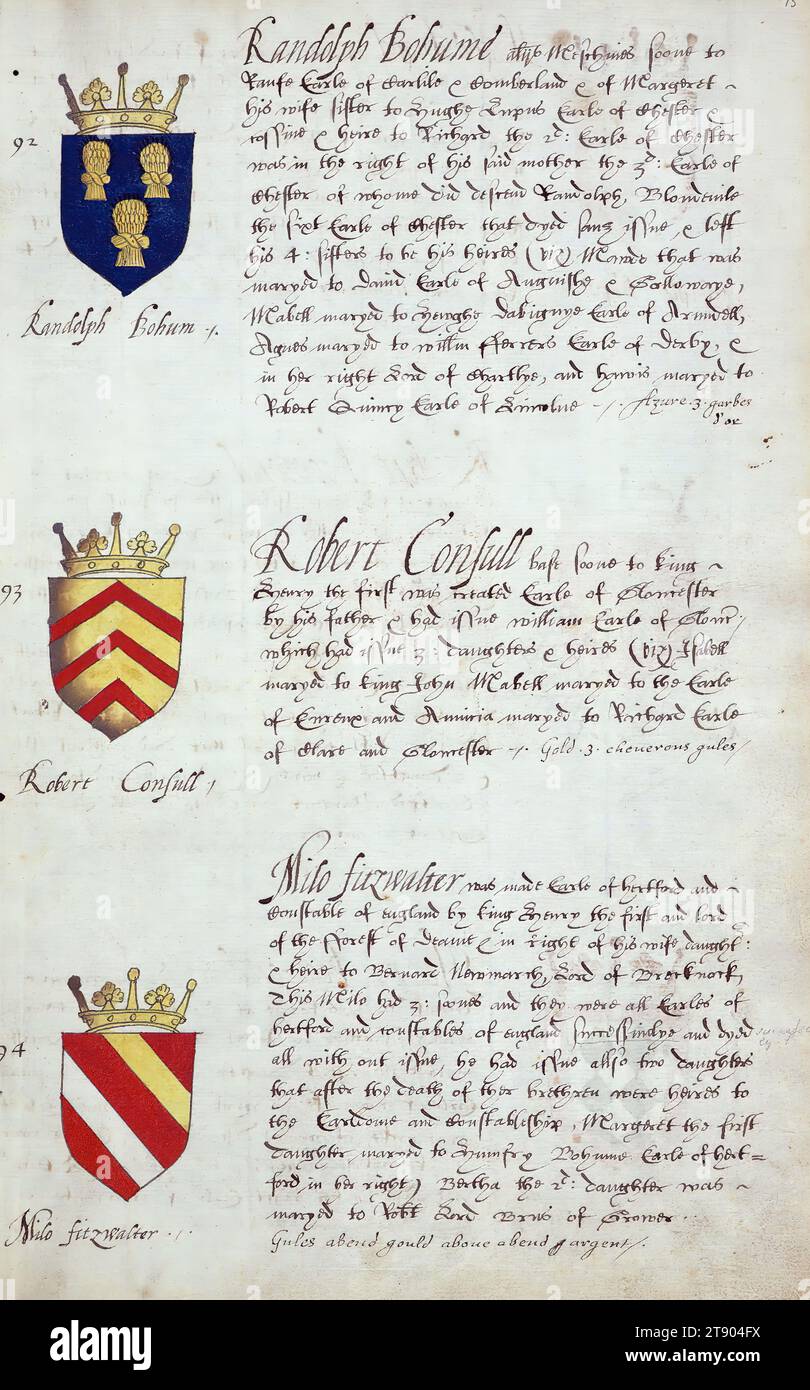 15
92
Randolph Bohume als Meschines soone to
Raufe Earle of Carlile & Comberland & of Margeret
his wife sister to Hughe Lupus Earle of Chester &
cossine & heire to Richard the 2: Earle of Chester
was in the right of his said mother the 3: Earle of
Chester of whome did descend Randolph, Blondevile
the sixt Earle of Chester that dyed sanz issue, & left
his 4: sisters to be his heires (viz) Mawde that was
maryed to david Earle of Anguishe & Gallowaye,
Mabell maryed to Hewghe dabignye Earle of Arundell,
Agnes maryed to willm fferrers Earle of Derby, &
in her right Lord of Chartlye, and hawis maryed to
Robert Quincy Earle of Lincolne Azure .3. garbes
d'or
Randolph Bohum
93
Robert Consull base soone to King
Henry the first was created Earle of Glocester
by his father & had issue william Earle of Gloucr
which had issue 3: daughters & heires (viz) Isabell
maryed to King John Mabell maryed to the Earle
of Eureux and Amicia maryed to Richard Earle
of Clare and Glocester Gold .3. cheuerons gules
Robert Consull
94
Milo fitzwalter was made Earle of hertford and
Constable of england by King Henry the first and lord
of the fforest of Deane & in right of his wife daught:
& heire to Bernard Newmarch, Lord of Brecknock,
This Milo had 3: soones and they were all Earles of
hertford and constables of england successiulye and dyed
all with out issue, he had issue allso two daughters
that after the death of ther brethren were heires to
the Earldome and Constableship, Margeret the first
daughter maryed to Humfry Bohume Earle of hert=
ford in her right) Bertha the 2: daughter was
maryed to Robt Lord Brus of Grower
Gules a bend gould aboue a bend argent
Milo fitzwalter
alamy
Image ID: 2T904FX
www.alamy.com